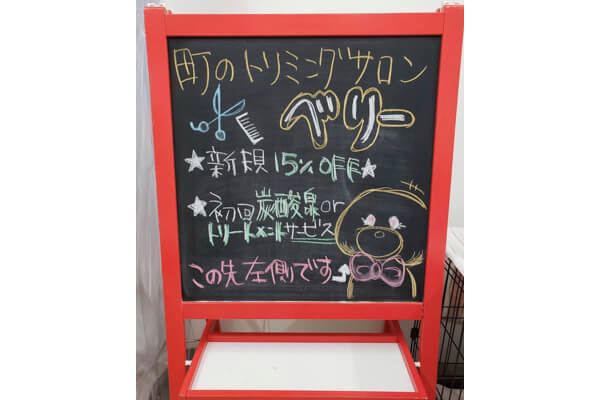 町のトリミングサロン
ベリー
★新規15%OFF★
★初回炭酸泉or
トリートメントサービス
この先左側です